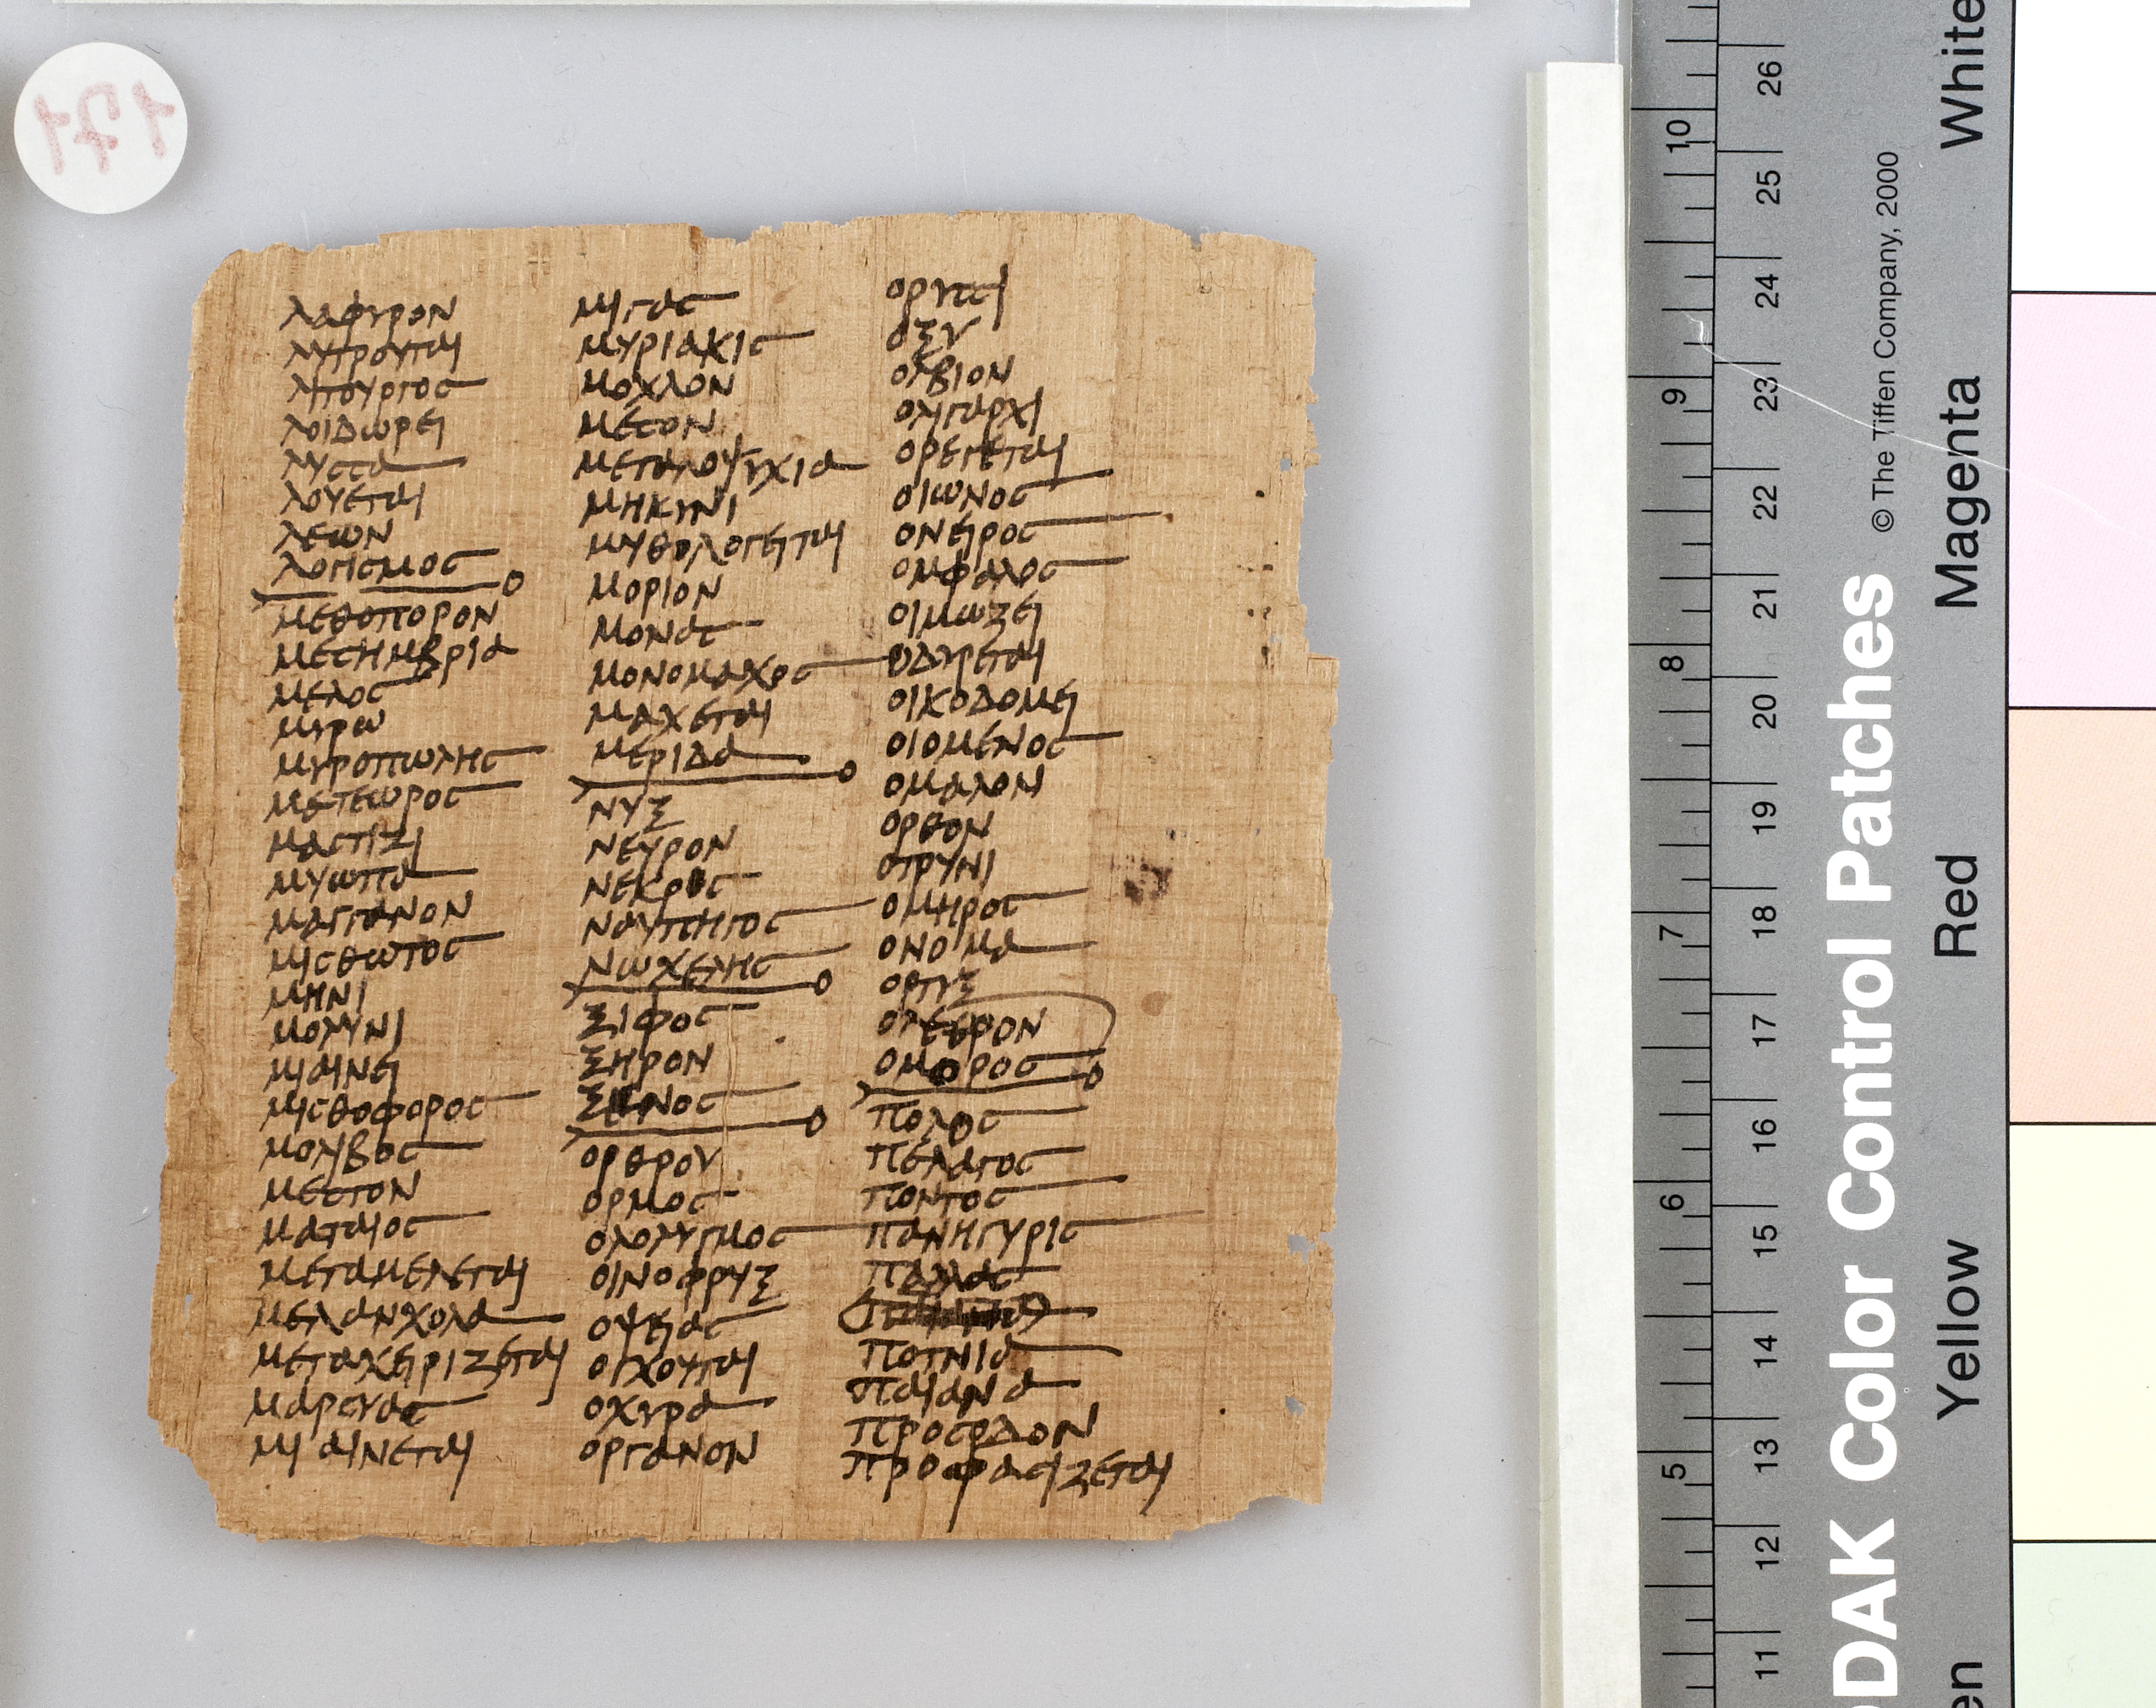 λαφυρον
λυτρουται
λιτουργος
λοιδωρει
λυσσα
λουεται
λεων
λογισμος
μεθοπορον
μεσημβρια
μελος
μυρω
μυροπωλης
μετεωρος
μαστιζι
μυωπα
μαγγανον
μισθωτος
μηνι
μολυνι
μιαινει
μισθοφορος
μολιβος
μεστον
ματαιος
μεταμελεται
μελανχολα
μεταχειριζεται
μαρσυας
μιαινεται
μιγας
μυριακις
μοχλον
μεσον
μεγαλοψυχια
μηκυνι
μυθολογειται
μοριον
μονας
μονομαχος
μαχεται
μεριδα
νυξ
νευρον
νεκρος
ναυπηγος
νωχελης
ξιφος
ξηρον
ξενος
ορθρου
ορμος
ολολυγμος
οινοφρυξ
οψειας
οιχουται
οχυρα
οργανον
ορυσσι
οξυ
ολβιον
ολιγαρχι
ορεγεται
οιωνος
ονειρος
ομφαλος
οιμωζει
οδυρεται
οικοδομει
οιομενος
ομαλον
ορθον
οτρυνι
ομηρος
ονομα
ορτυξ
ολεθρον
ομορος
πολος
πελαγος
ποντος
πανηγυρις
παλλας
ποτνια
παιανα
προσοδον
προφασιζεται
171
26
25
24
23
22
21
20
19
18
17
16
15
14
13
12
11
10
9
8
7
6
5
© The Tiffen Company, 2000
DAK Color Control Patches
White
Magenta
Red
Yellow
en